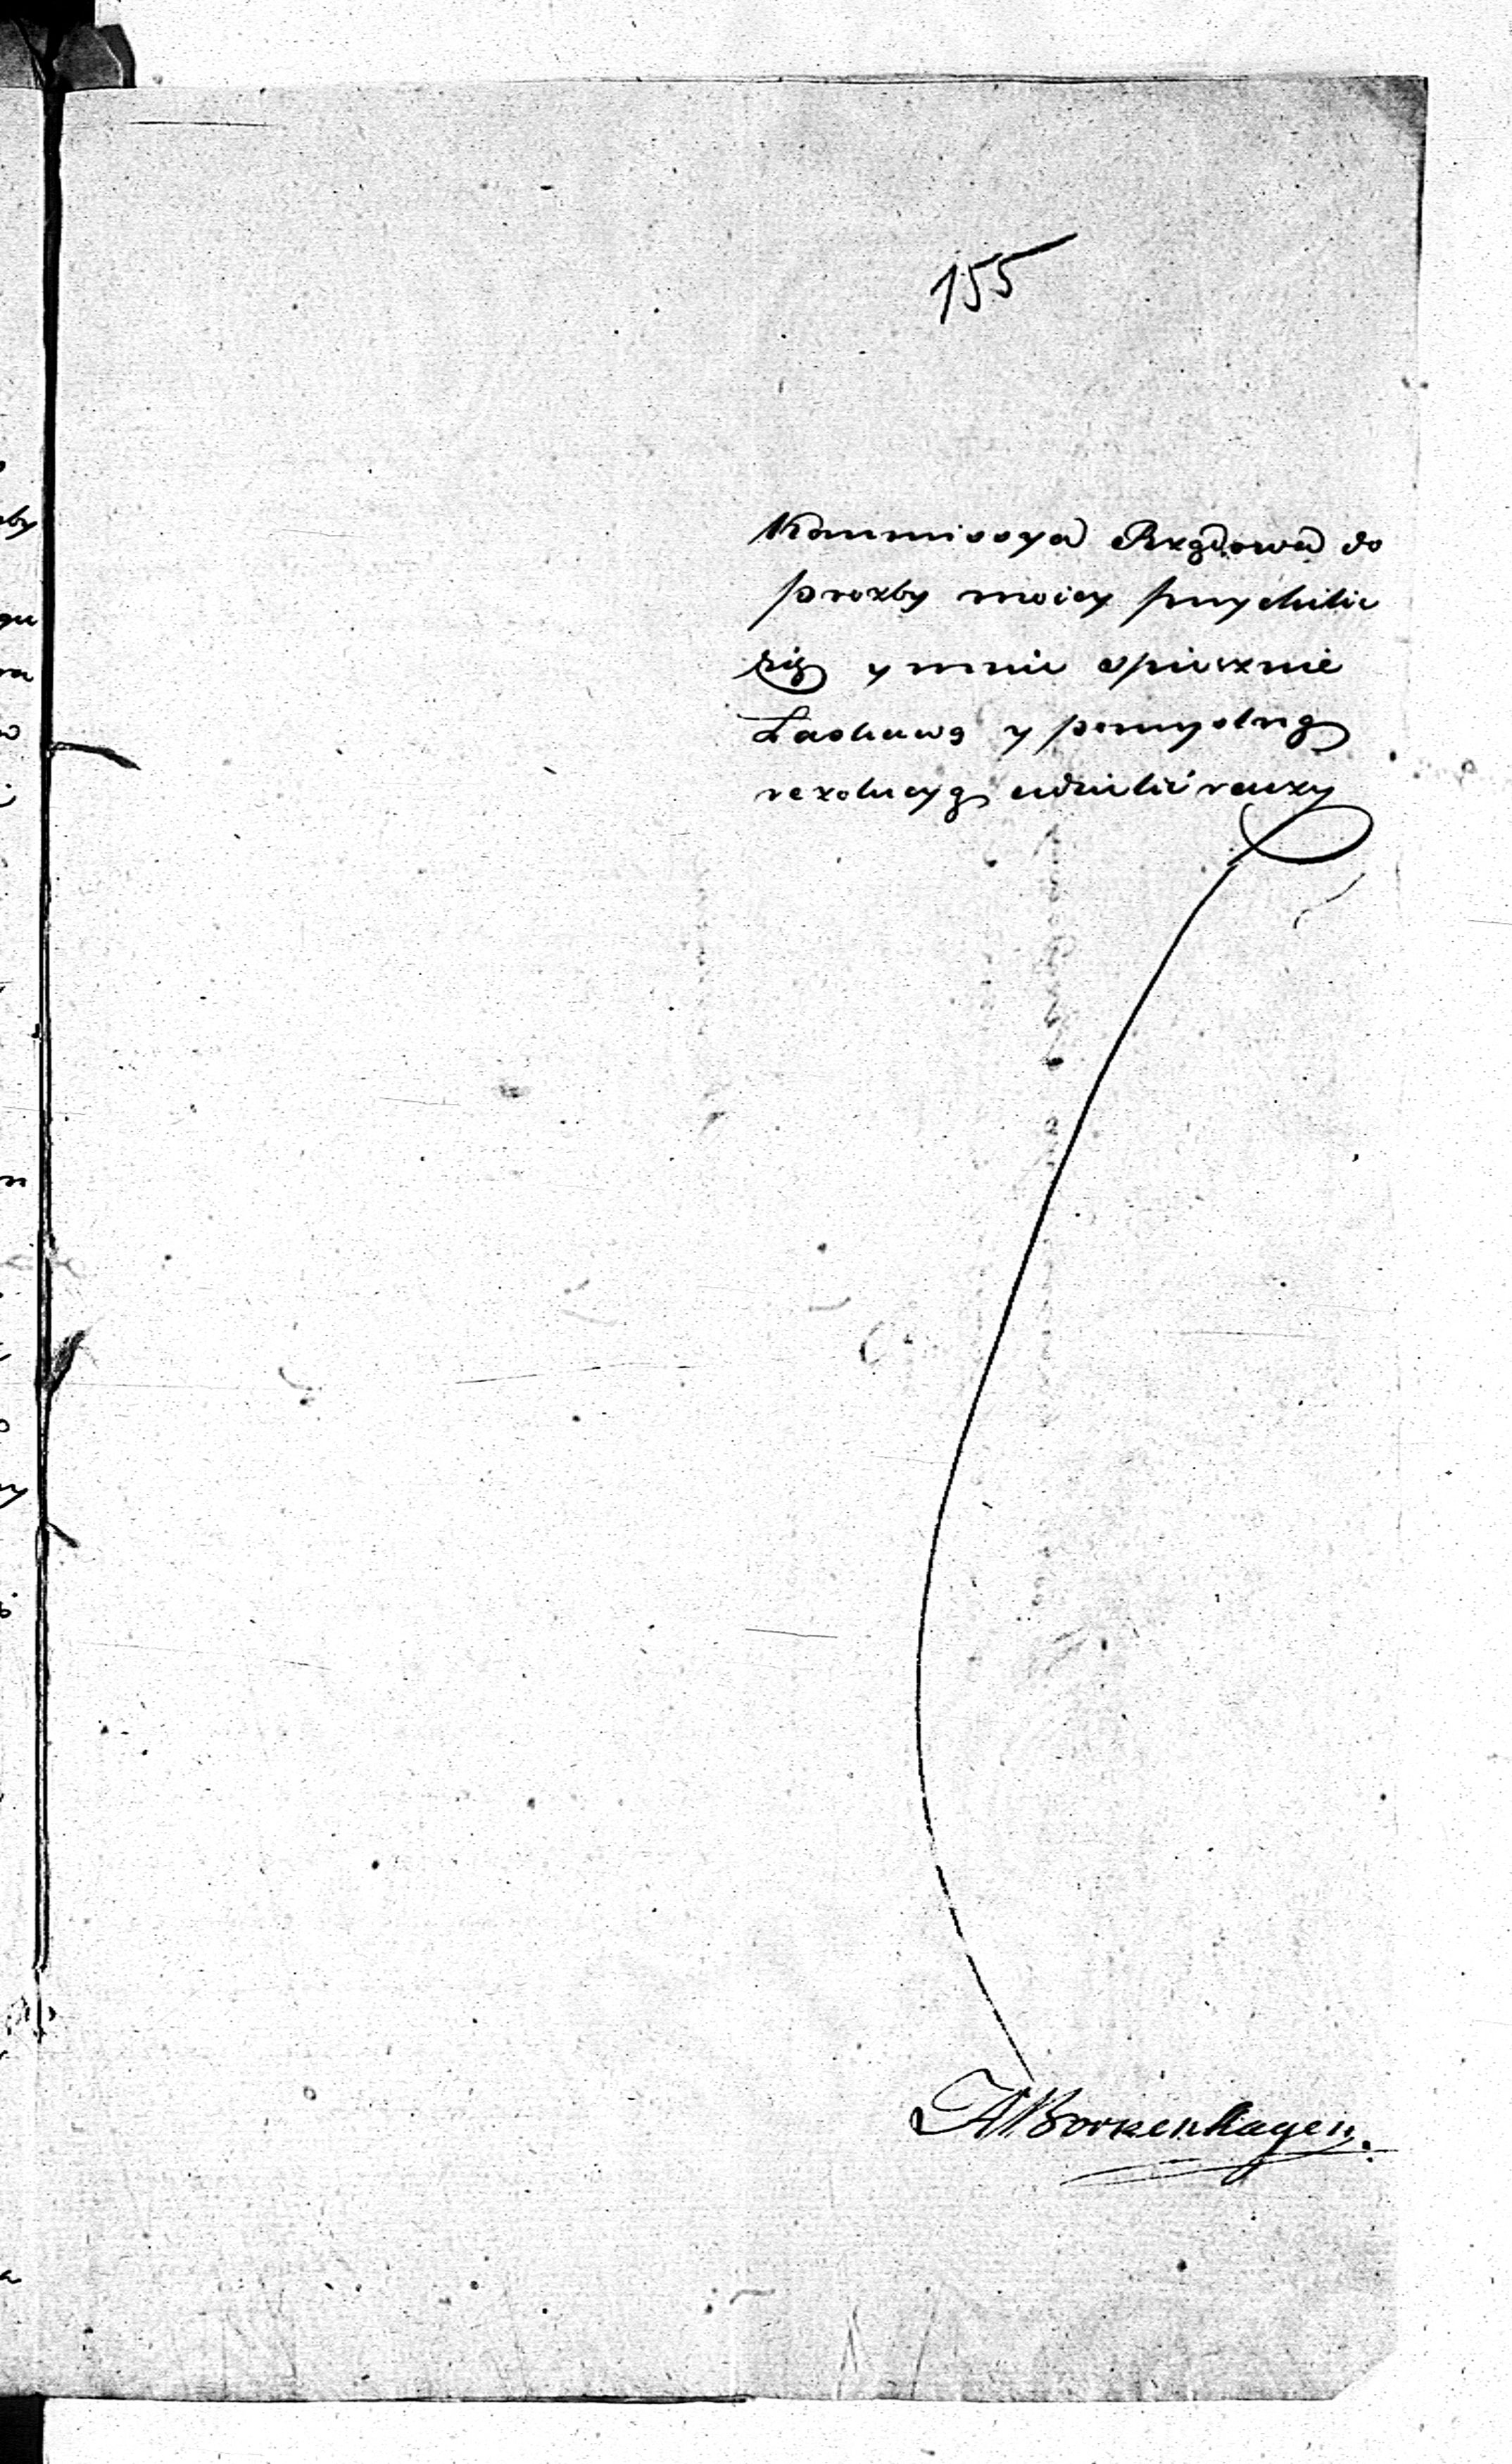 155
Kommissya Rządowa do
prozby moiey przychilić
się y mnie spiesznie
Łaskawą y pomyslną
rezolucyą udzielić raczy
JABorkenhagen.